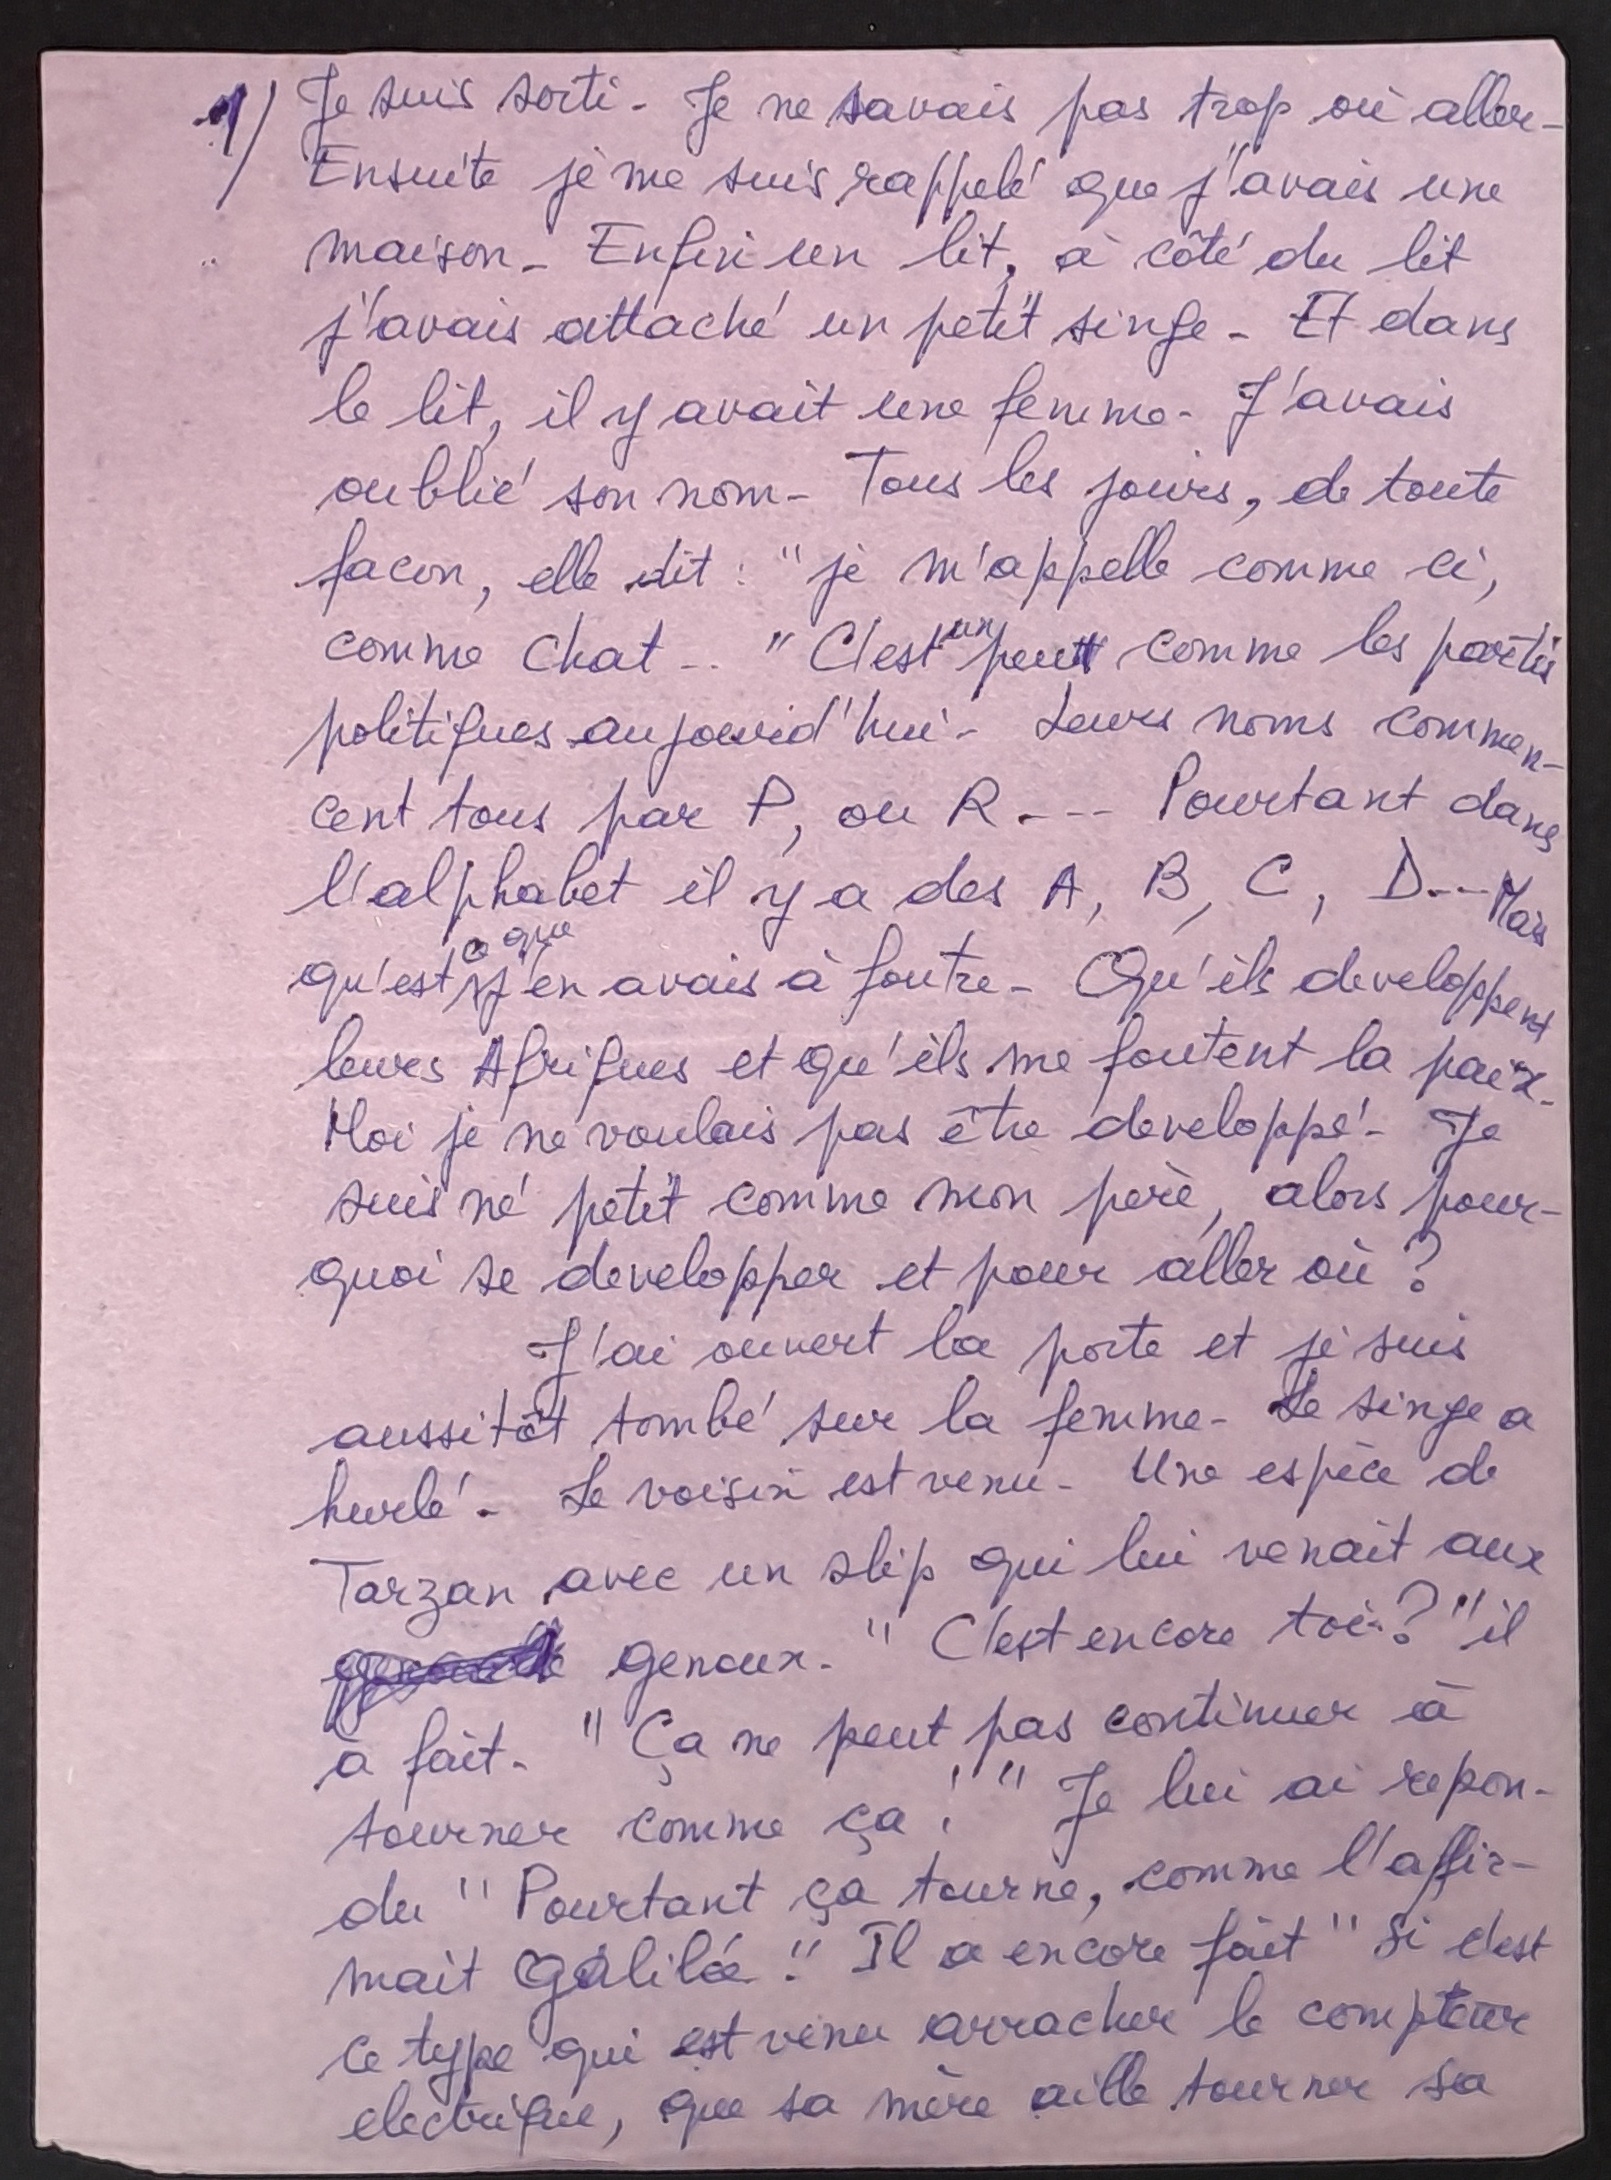 1/ Je suis sorti. Je ne savais pas trop où aller.
Ensuite je me suis rappelé que j'avais une
maison. Enfin un lit, à côté du lit
j'avais attaché un petit singe. Et dans
le lit, il y avait une femme. J'avais
oublié son nom. Tous les jours, de toute
facon, elle dit : "je m'appelle comme ci,
comme chat..." C'est un peu comme les partis
politiques aujourd'hui. Leurs noms commen-
cent tous par P, ou R.... Pourtant dans
l'alphabet il y a des A, B, C, D... Mais
qu'est ce que j'en avais à foutre. Qu'ils developpent
leurs Afriques et qu'ils me foutent la paix.
Moi je ne voulais pas être developpé. Je
suis né petit comme mon père, alors pour-
quoi se developper et pour aller où ?
J'ai ouvert la porte et je suis
aussitôt tombé sur la femme. Le singe a
hurlé. Le voisin est venu. Une espèce de
Tarzan avec un slip qui lui venait aux
genoux. "C'est encore toi ?" il
a fait. "Ça ne peut pas continuer à
tourner comme ça !" Je lui ai repon-
du "Pourtant ça tourne, comme l'affir-
mait Galilée." Il a encore fait "Si c'est
ce type qui est venu arracher le compteur
electrique, que sa mère aille tourner sa